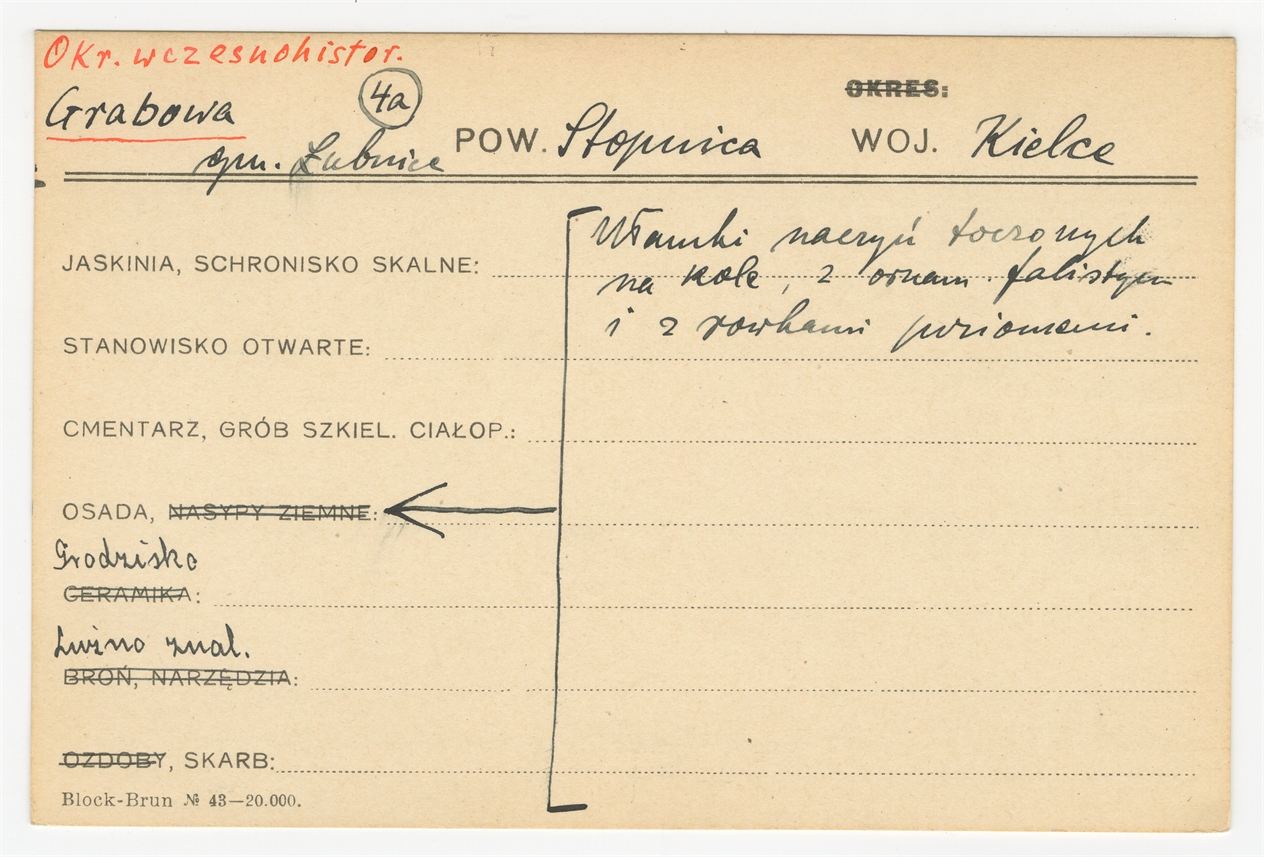 Okr. wczesnohistor.
Grabowa 4a OKRES:
gm. Łubnice POW. Stopnica WOJ. Kielce
Ułamki naczyń toczonych
JASKINIA, SCHRONISKO SKALNE: na kole, z ornam. falistym
i z rowkami poziomemi.
STANOWISKO OTWARTE:
CMENTARZ, GRÓB SZKIEL. CIAŁOP.:
OSADA, NASYPY ZIEMNE:
Grodzisko
CERAMIKA:
Luźno znal.
BROŃ, NARZĘDZIA:
OZDOBY, SKARB:
Block-Brun № 43—20.000.